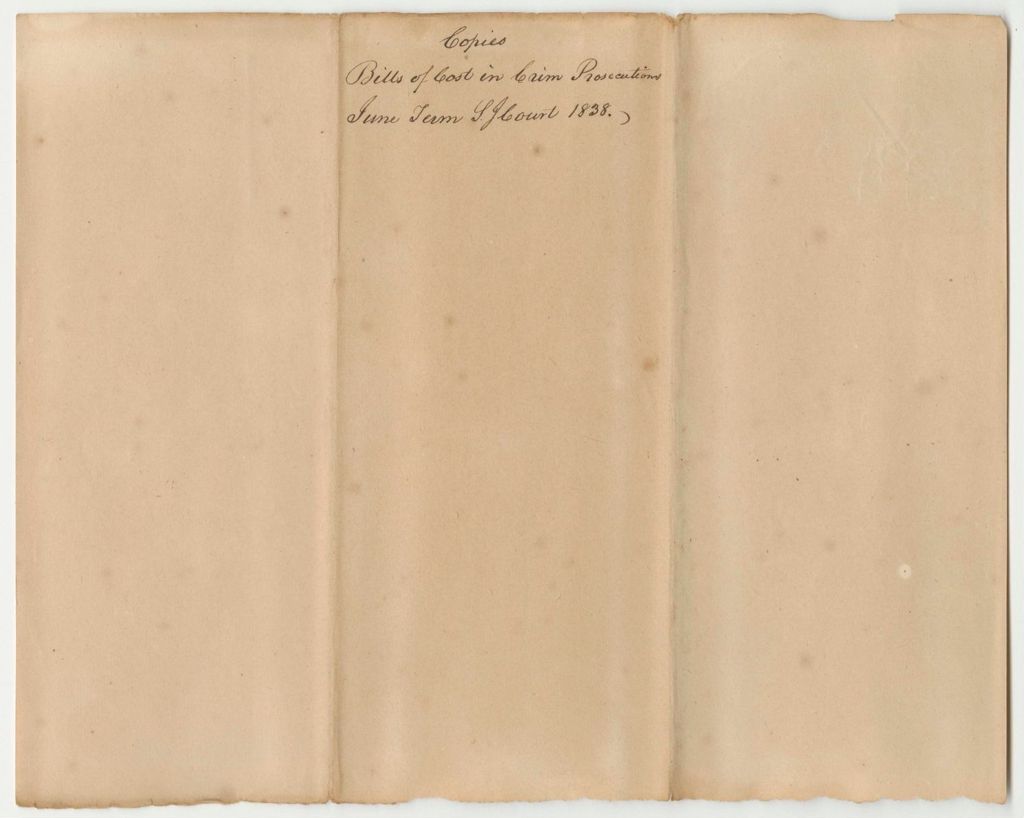 Copies
Bills of Cost in Crim Prosecutions
June Term S J Court 1838.